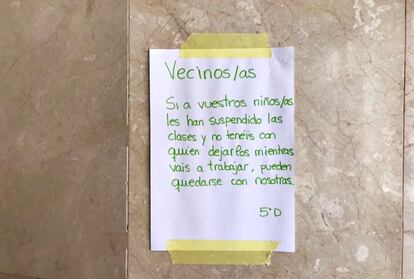 Vecinos/as
Si a vuestros niños/as
les han suspendido las
clases y no tenéis con
quien dejarlos mientras
vais a trabajar, pueden
quedarse con nosotras.
5°D